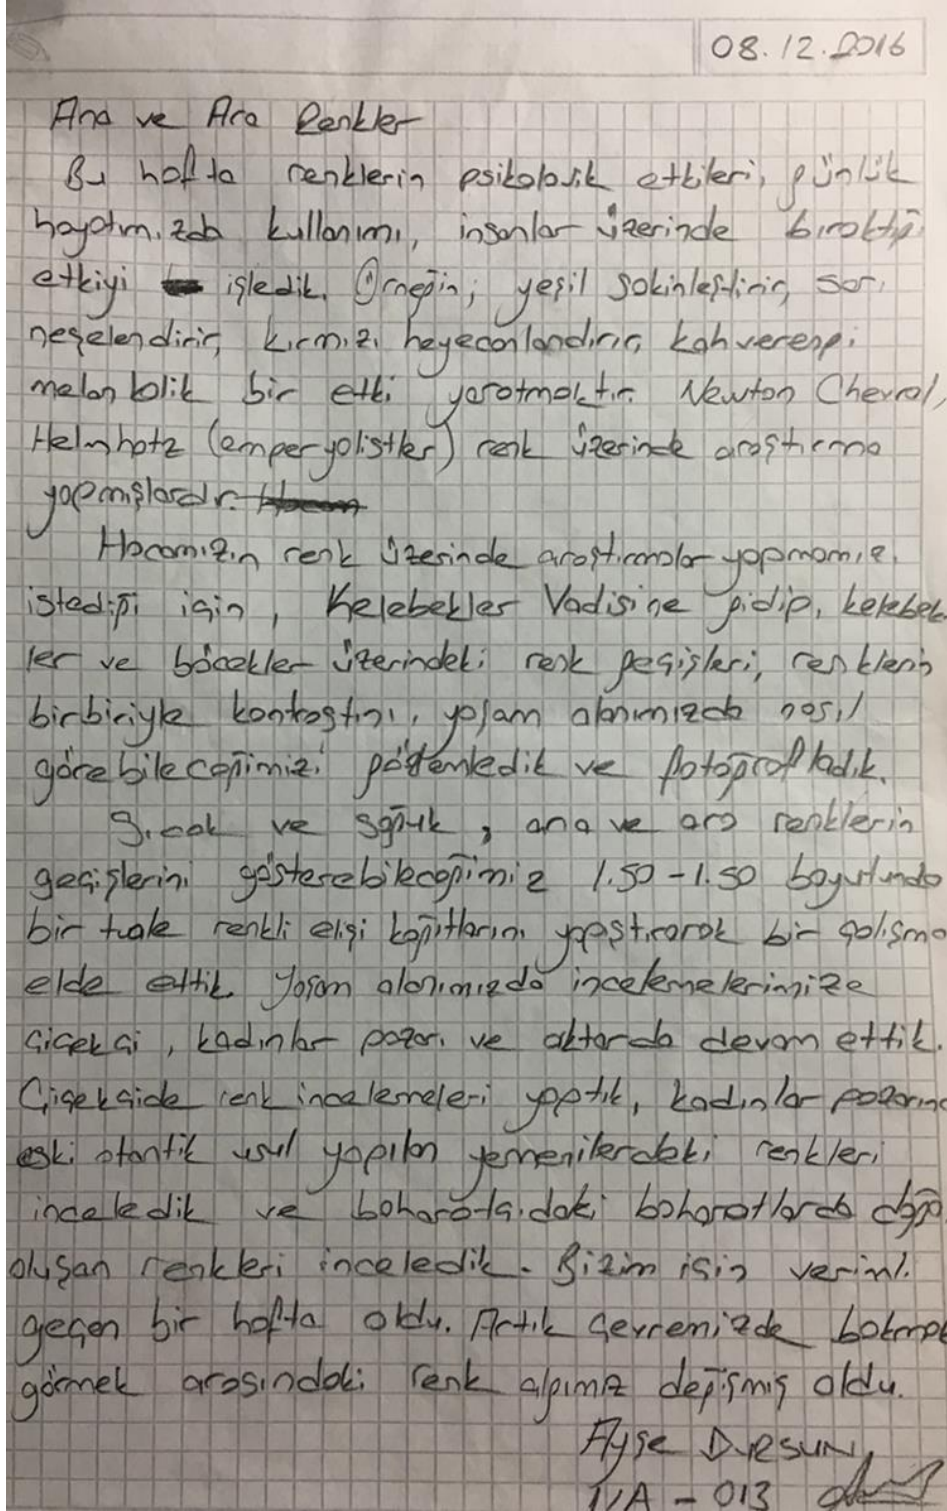 08.12.2016
Ana ve Ara Renkler
Bu hafta renklerin psikolojik etkileri, günlük
hayatımızda kullanımı, insanlar üzerinde bıraktığı
etkiyi işledik. Örneğin; yeşil sakinleştirir, sarı
neşelendirir, kırmızı heyecanlandırır, kahverengi
melankolik bir etki yaratmaktır. Newton Chevral,
Helmhotz (emperyalistler) renk üzerinde araştırma
yapmışlardır.
Hocamızın renk üzerinde araştırmalar yapmamızı
istediği için, Kelebekler Vadisine gidip, kelebek
ler ve böcekler üzerindeki renk geçişleri, renklerin
birbiriyle kontrastını, yaşam alanımızda nasıl
görebileceğimizi gözlemledik ve fotoğrafladık.
Sıcak ve soğuk, ana ve ara renklerin
geçişlerini gösterebileceğimiz 1.50-1.50 boyutunda
bir tuale renkli elişi kağıtlarını yapıştırarak bir çalışma
elde ettik. Yaşam alanımızda incelemelerimize
çiçekçi, kadınlar pazarı ve aktarda devam ettik.
Çiçekçide renk incelemeleri yaptık, kadınlar pazarında
eski otantik usul yapılan yemenilerdeki renkleri
inceledik ve baharatçıdaki baharatlarda doğal
oluşan renkleri inceledik. Bizim için verimli
geçen bir hafta oldu. Artık çevremizde bakmak
görmek arasındaki renk algımız değişmiş oldu.
Ayşe DURSUN
1/A - 013